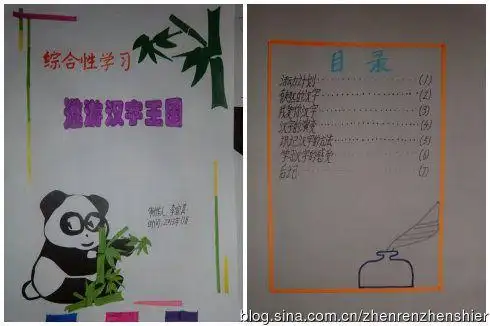 综合性学习
遨游汉字王国
制作人
时间
目录
活动计划 (1)
有趣的汉字 (2)
我爱你汉字 (3)
汉字的演变 (4)
识记汉字的方法 (5)
学习汉字的感受 (6)
后记 (7)
blog.sina.com.cn/zhenrenzhenshier